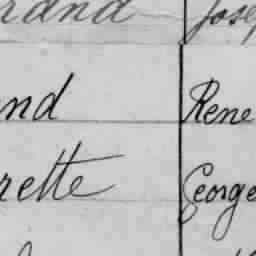 rand Josep
nd Rene
rette George